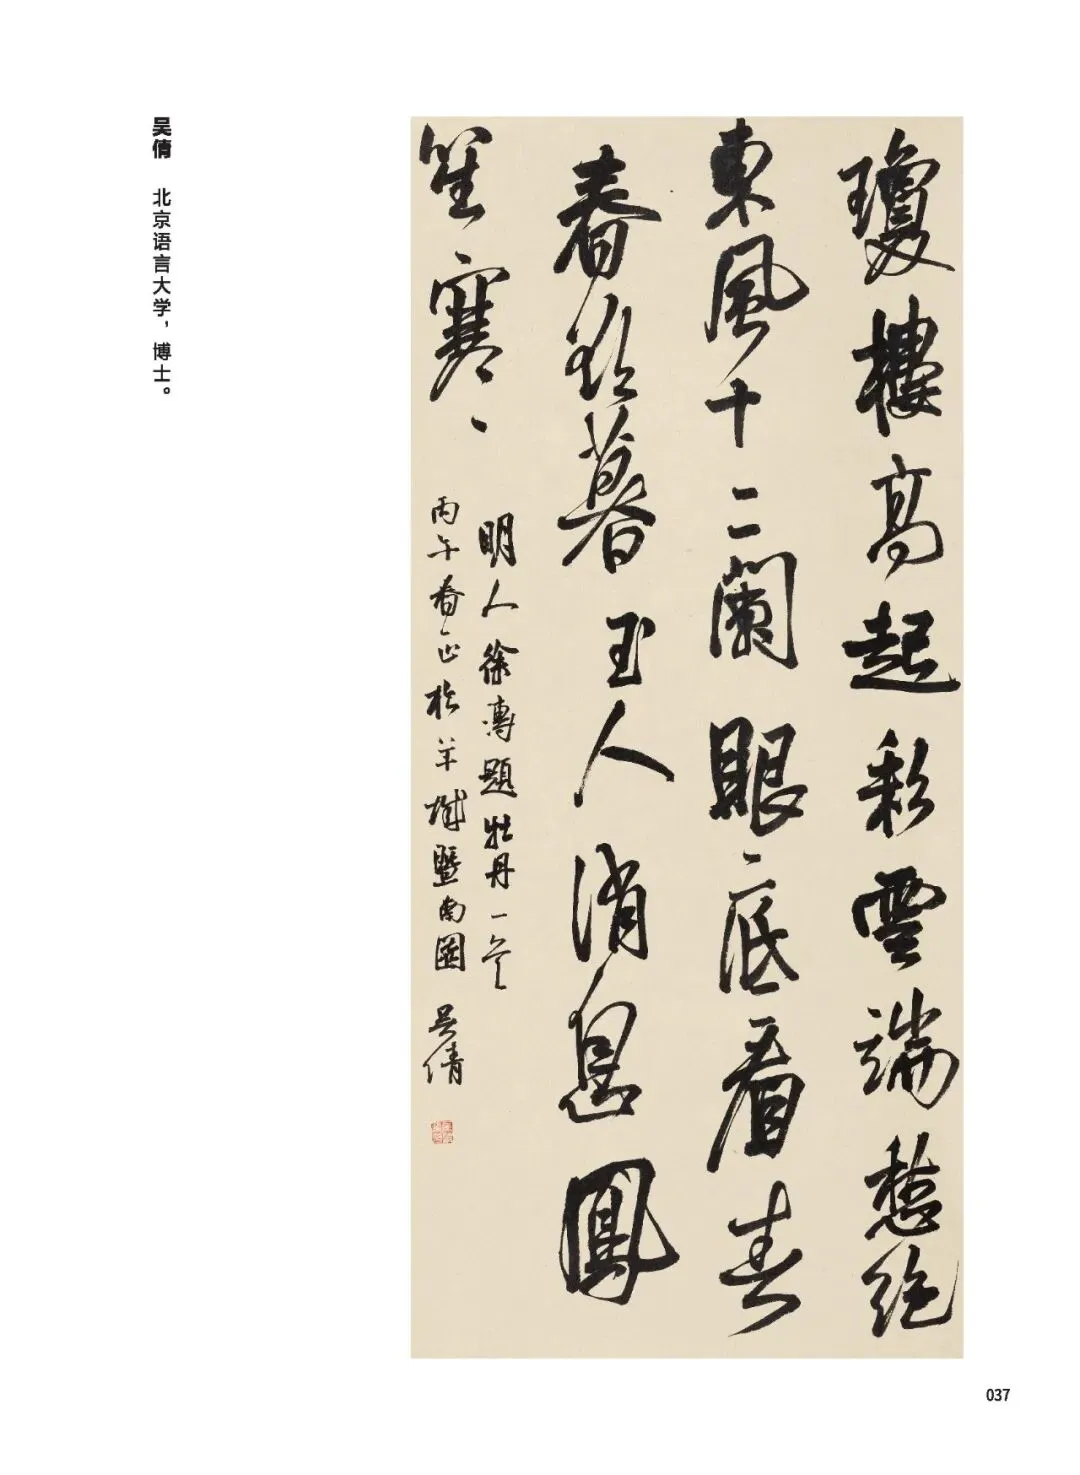 瓊樓高起彩雲端愁絕
東風十二闌眼底看春
春欲暮玉人消息鳳
笙寒
明人徐溥題牡丹一首
丙午春正於羊城暨南園 吳倩
吴倩 北京语言大学，博士。
037